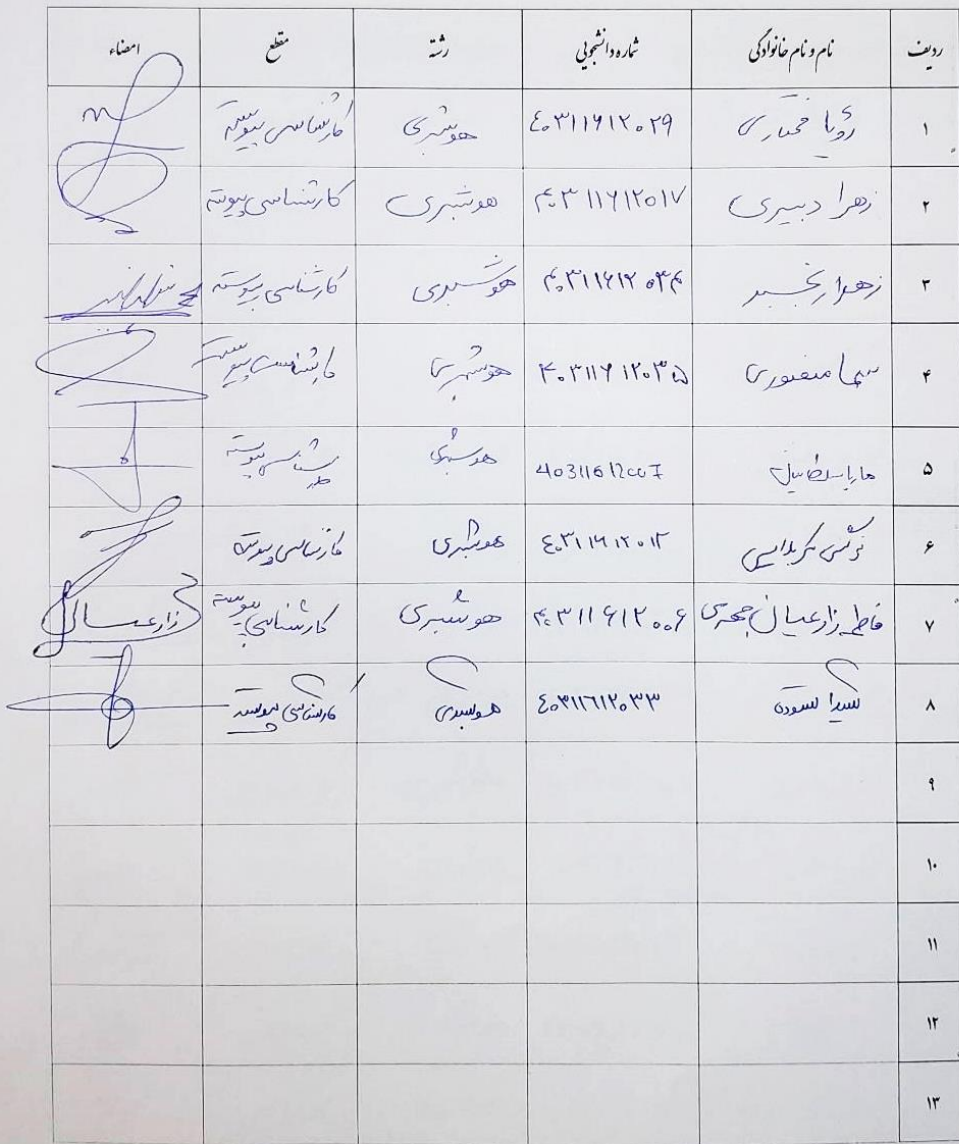 ردیف نام و نام خانوادگی شماره دانشجویی رشته مقطع امضاء
۱ رؤیا مختاری ٤٠٣١١٦١٢٠٢٩ هوشبری کارشناسی پیوسته
۲ زهرا دبیری ۴۰۳۱۱۶۱۲۰۱۷ هوشبری کارشناسی پیوسته
۳ زهرا رنجبر ۴۰۳۱۱۶۱۲۰۳۴ هوشبری کارشناسی پیوسته
۴ سیما منصوری ۴۰۳۱۱۶۱۲۰۳۵ هوشبری کارشناسی پیوسته
۵ 40311612007 هوشبری پیوسته
۶ نرگس کربلایی ٤٠٣١١٦١٢٠١٢ هوشبری کارشناسی پیوسته
۷ فاطمه زارعیان جهرمی ۴۰۳۱۱۶۱۲۰۰۶ هوشبری کارشناسی پیوسته زارعیان
۸ ستوده ٤٠٣١١٦١٢٠٣٣ هوشبری کارشناسی پیوسته
۹
۱۰
۱۱
۱۲
۱۳